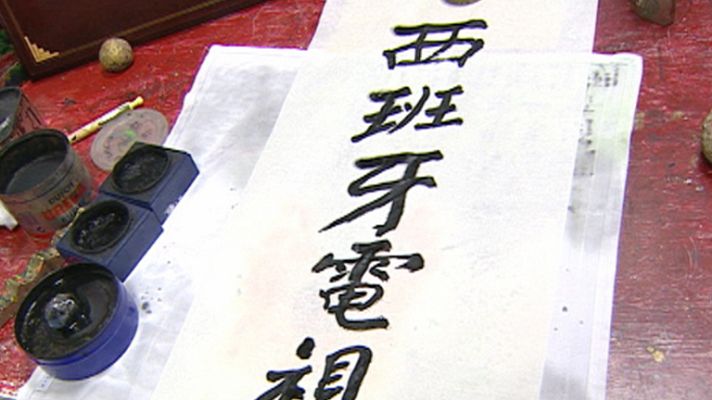 西班牙電視